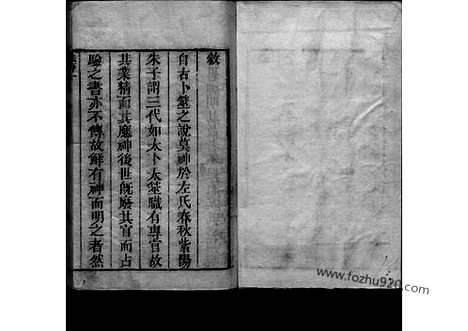 敘
自古卜筮之說莫神於左氏春秋紫陽
朱子謂三代如太卜太筮職有專官故
其業精而其應神後世旣廢其官而占
驗之書亦不傳故鮮有神而明之者然
www.fozhu920.com